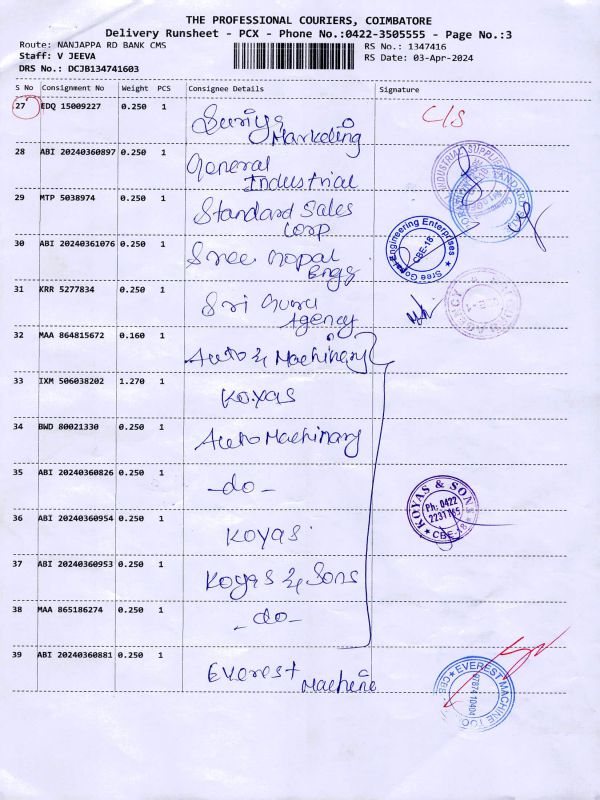 THE PROFESSIONAL COURIERS, COIMBATORE
Delivery Runsheet - PCX - Phone No.:0422-3505555 - Page No.:3
Route: NANJAPPA RD BANK CMS
RS No.: 1347416
Staff: V JEEVA
RS Date: 03-Apr-2024
DRS No.: DCJB134741603
S No Consignment No Weight PCS Consignee Details Signature
27 EDQ 15009227 0.250 1 Suriya C/S
Marketing
28 ABI 20240360897 0.250 1 General
Industrial
29 MTP 5038974 0.250 1 Standard Sales
Corp
30 ABI 20240361076 0.250 1 Sree Gopal
Engg
Sree Gopal Engineering Enterprises
CBE-18
31 KRR 5277834 0.250 1 Sri Guru
Agency
32 MAA 864815672 0.160 1 Auto & Machinary
33 IXM 506038202 1.270 1 Koyas
34 BWD 80021330 0.250 1 Auto Machinary
35 ABI 20240360826 0.250 1 -do-
KOYAS & SONS
Ph: 0422
CBE-18
36 ABI 20240360954 0.250 1 Koyas
37 ABI 20240360953 0.250 1 Koyas & Sons
38 MAA 865186274 0.250 1 -do-
39 ABI 20240360881 0.250 1 Everest
Machine
EVEREST MACHINE TOOL
CBE
97874 10404